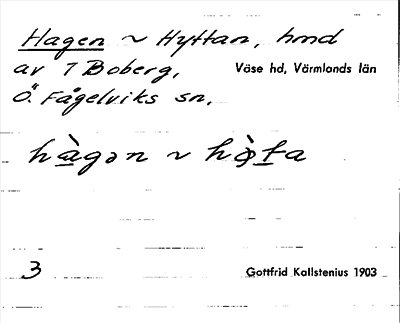 Hagen ~ Hyttan, hmd
av 7 Boberg, Väse hd, Värmlands län
Ö. Fågelviks sn.
hàgǝn ~
3 Gottfrid Kallstenius 1903